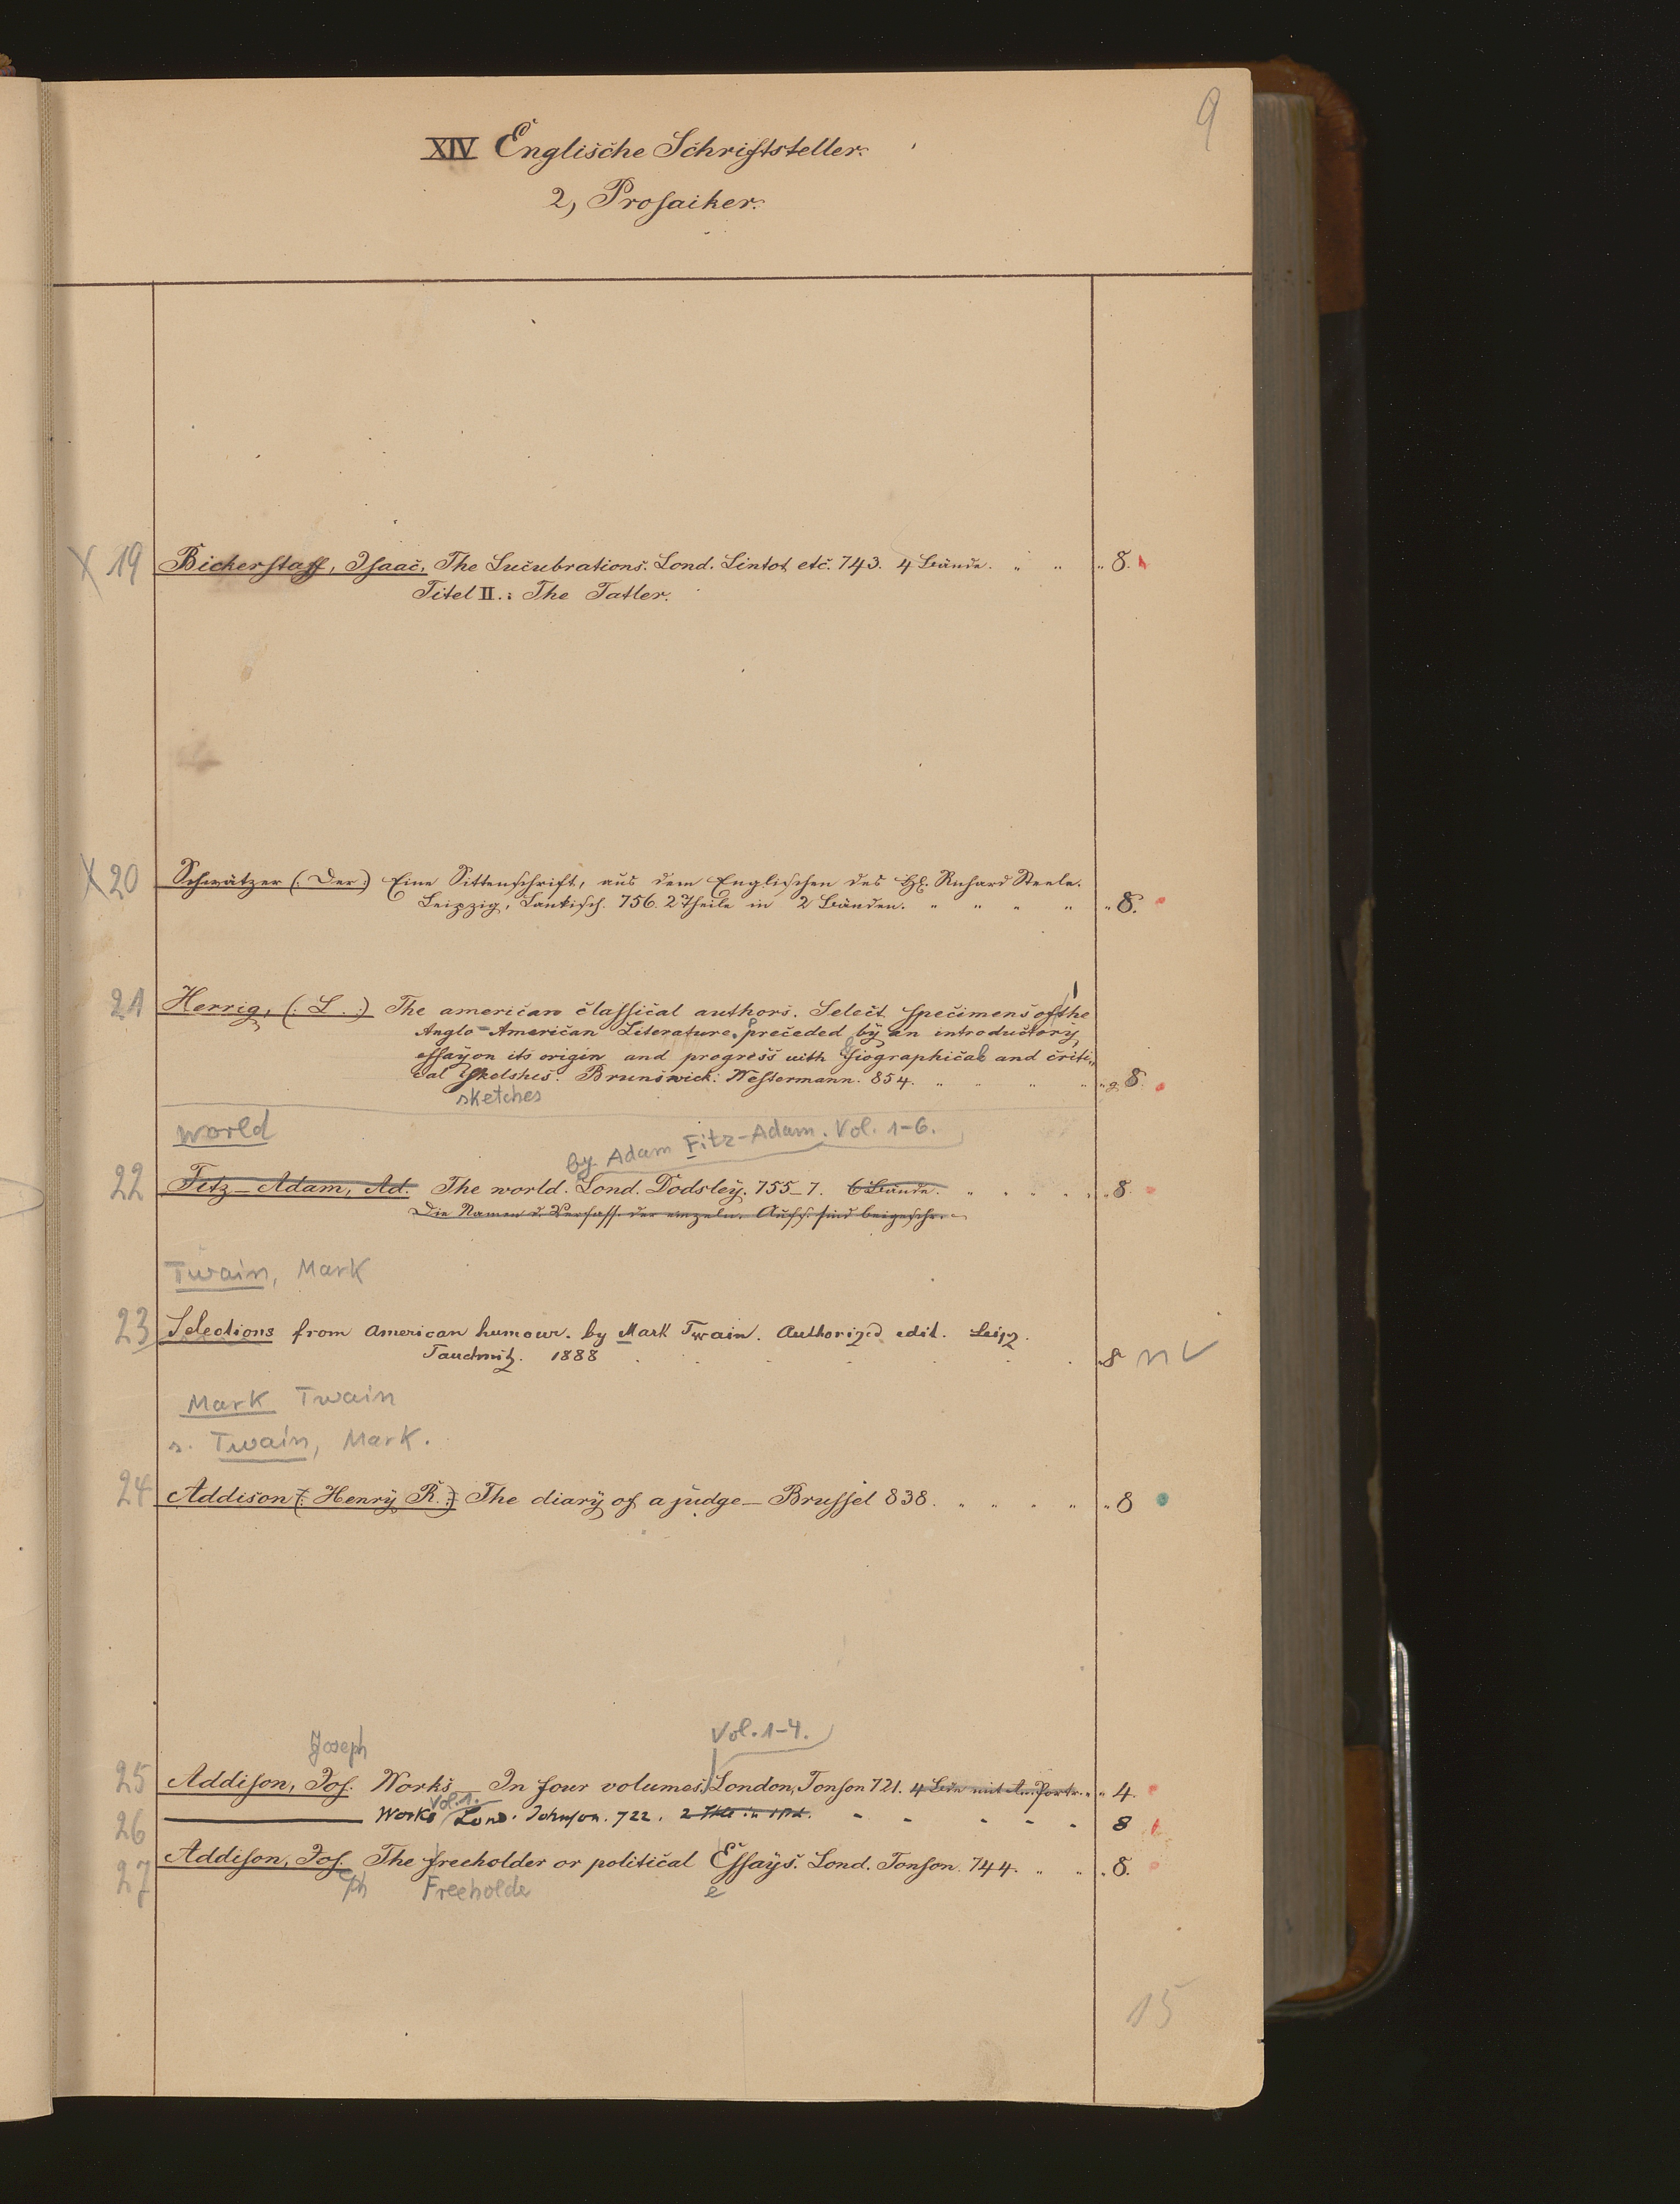 9
XIV Englische Schriftsteller.
2, Prosaiker.
X 19 Bickerstaff, Isaac, The Lucubrations. Lond. Lintot etc. 743. 4 Bände. " " " 8.
Titel II.: The Tatler.
X 20 Schwätzer (: Der :) Eine Sittenschrift, aus dem Englischen des H. Richard Steele.
Leipzig, Lankisch. 756. 2 Theile in 2 Bänden. " " " " " 8.
21 Herrig, (: L. :) The american classical authors. Select specimens of the
Anglo-American Literature, preceded by an introductory
essay on its origin and progress with biographical and criti
cal skelshes. Brunswick: Westermann. 854. " " " " 8.
sketches
World
by Adam Fitz-Adam. Vol. 1-6.
22 Fitz-Adam, Ad. The world. Lond. Dodsley. 755_7. 6 Bände. " " " " 8.
Die Namen d. Verfass. der einzeln. Aufs. sind beigeschr.
Twain, Mark
23 Selections from American humour. by Mark Twain. Authorized edit. Leipz.
Tauchnitz. 1888 . . . . . . 8 n ✓
Mark Twain
s. Twain, Mark.
24 Addison (: Henry R. :) The diary of a judge _ Brussel 838. " " " " " 8
Joseph
Vol. 1-4.
25 Addison, Jos. Works _ In four volumes. London, Tonson 721. 4 Bde mit Portr. " " 4.
Vol. 1.
26 ——— Works Lond. Johnson. 722. - - - - - 8
27 Addison, Jos. The freeholder or political Essays. Lond. Tonson. 744. " " " 8.
eph Freeholde e
15